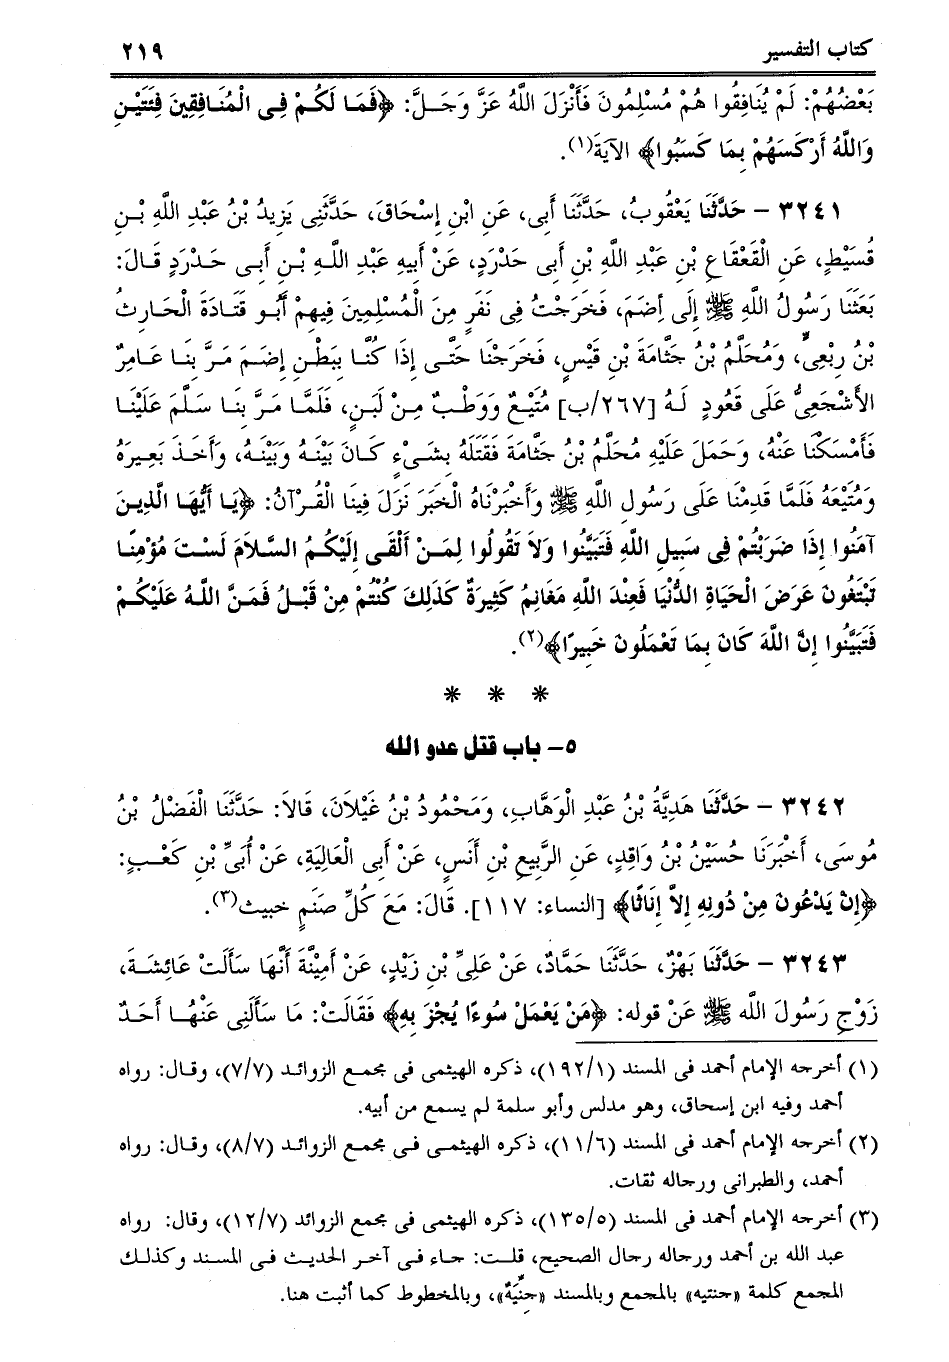 كتاب التفسير ٢١٩
بَعْضُهُمْ: لَمْ يُنَافِقُوا هُمْ مُسْلِمُونَ فَأَنْزَلَ اللَّهُ عَزَّ وَجَلَّ: ﴿فَمَا لَكُمْ فِى الْمُنَافِقِينَ فِئَتَيْنِ
وَاللَّهُ أَرْكَسَهُمْ بِمَا كَسَبُوا﴾ الآيَةَ(١).
٣٢٤١ – حَدَّثَنَا يَعْقُوبُ، حَدَّثَنَا أَبِى، عَنِ ابْنِ إِسْحَاقَ، حَدَّثَنِى يَزِيدُ بْنُ عَبْدِ اللَّهِ بْنِ
قُسَيْطٍ، عَنِ الْقَعْقَاعِ بْنِ عَبْدِ اللَّهِ بْنِ أَبِى حَدْرَدٍ، عَنْ أَبِيهِ عَبْدِ اللَّهِ بْنِ أَبِى حَدْرَدٍ قَالَ:
بَعَثَنَا رَسُولُ اللَّهِ ﷺ إِلَى أِضَمَ، فَخَرَجْتُ فِى نَفَرٍ مِنَ الْمُسْلِمِينَ فِيهِمْ أَبُو قَتَادَةَ الْحَارِثُ
بْنُ رِبْعِىٍّ، وَمُحَلَّمُ بْنُ جَثَّامَةَ بْنِ قَيْسٍ، فَخَرَجْنَا حَتَّى إِذَا كُنَّا بِبَطْنِ إِضَمَ مَرَّ بِنَا عَامِرٌ
الأَشْجَعِىُّ عَلَى قَعُودٍ لَهُ [٢٦٧/ب] مُتَيْعٌ وَوَطْبٌ مِنْ لَبَنٍ، فَلَمَّا مَرَّ بِنَا سَلَّمَ عَلَيْنَا
فَأَمْسَكْنَا عَنْهُ، وَحَمَلَ عَلَيْهِ مُحَلَّمُ بْنُ جَثَّامَةَ فَقَتَلَهُ بِشَىْءٍ كَانَ بَيْنَهُ وَبَيْنَهُ، وَأَخَذَ بَعِيرَهُ
وَمُتَيْعَهُ فَلَمَّا قَدِمْنَا عَلَى رَسُولِ اللَّهِ ﷺ وَأَخْبَرْنَاهُ الْخَبَرَ نَزَلَ فِينَا الْقُرْآنُ: ﴿يَا أَيُّهَا الَّذِينَ
آمَنُوا إِذَا ضَرَبْتُمْ فِى سَبِيلِ اللَّهِ فَتَبَيَّنُوا وَلاَ تَقُولُوا لِمَنْ أَلْقَى إِلَيْكُمُ السَّلاَمَ لَسْتَ مُؤْمِنًا
تَبْتَغُونَ عَرَضَ الْحَيَاةِ الدُّنْيَا فَعِنْدَ اللَّهِ مَغَانِمُ كَثِيرَةٌ كَذَلِكَ كُنْتُمْ مِنْ قَبْلُ فَمَنَّ اللَّهُ عَلَيْكُمْ
فَتَبَيَّنُوا إِنَّ اللَّهَ كَانَ بِمَا تَعْمَلُونَ خَبِيرًا﴾(٢).
* * *
٥- باب قتل عدو الله
٣٢٤٢ – حَدَّثَنَا هَدِيَّةُ بْنُ عَبْدِ الْوَهَّابِ، وَمَحْمُودُ بْنُ غَيْلاَنَ، قَالاَ: حَدَّثَنَا الْفَضْلُ بْنُ
مُوسَى، أَخْبَرَنَا حُسَيْنُ بْنُ وَاقِدٍ، عَنِ الرَّبِيعِ بْنِ أَنَسٍ، عَنْ أَبِى الْعَالِيَةِ، عَنْ أُبَىِّ بْنِ كَعْبٍ:
﴿إِنْ يَدْعُونَ مِنْ دُونِهِ إِلاَّ إِنَاثًا﴾ [النساء: ١١٧]. قَالَ: مَعَ كُلِّ صَنَمٍ خبيث(٣).
٣٢٤٣ – حَدَّثَنَا بَهْزٌ، حَدَّثَنَا حَمَّادٌ، عَنْ عَلِىِّ بْنِ زَيْدٍ، عَنْ أَمِينَّةَ أَنَّهَا سَأَلَتْ عَائِشَةَ،
زَوْجِ رَسُولَ اللَّهِ ﷺ عَنْ قوله: ﴿مَنْ يَعْمَلْ سُوءًا يُجْزَ بِهِ﴾ فَقَالَتْ: مَا سَأَلَنِى عَنْهُمَا أَحَدٌ
(١) أخرجه الإمام أحمد فى المسند (١٩٢/١)، ذكره الهيثمى فى مجمع الزوائد (٧/٧)، وقال: رواه
أحمد وفيه ابن إسحاق، وهو مدلس وأبو سلمة لم يسمع من أبيه.
(٢) أخرجه الإمام أحمد فى المسند (١١/٦)، ذكره الهيثمى فى مجمع الزوائد (٨/٧)، وقال: رواه
أحمد، والطبرانى ورجاله ثقات.
(٣) أخرجه الإمام أحمد فى المسند (١٣٥/٥)، ذكره الهيثمى فى مجمع الزوائد (١٢/٧)، وقال: رواه
عبد الله بن أحمد ورجاله رجال الصحيح، قلت: جاء فى آخر الحديث فى المسند وكذلك
المجمع كلمة «حنتيه» بالمجمع وبالمسند «جِنِّيَّةٌ»، وبالمخطوط كما أثبت هنا.